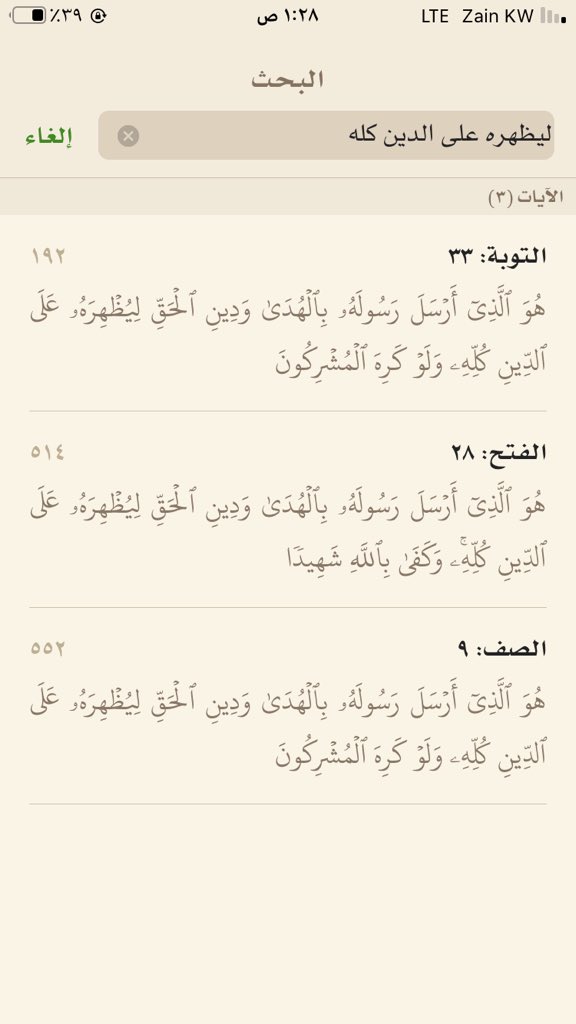 ٪٣٩ ١:٢٨ ص LTE Zain KW
البحث
ليظهره على الدين كله إلغاء
الآيات (٣)
التوبة: ٣٣ ١٩٢
هُوَ ٱلَّذِىٓ أَرۡسَلَ رَسُولَهُۥ بِٱلۡهُدَىٰ وَدِينِ ٱلۡحَقِّ لِيُظۡهِرَهُۥ عَلَى
ٱلدِّينِ كُلِّهِۦ وَلَوۡ كَرِهَ ٱلۡمُشۡرِكُونَ
الفتح: ٢٨ ٥١٤
هُوَ ٱلَّذِىٓ أَرۡسَلَ رَسُولَهُۥ بِٱلۡهُدَىٰ وَدِينِ ٱلۡحَقِّ لِيُظۡهِرَهُۥ عَلَى
ٱلدِّينِ كُلِّهِۦۚ وَكَفَىٰ بِٱللَّهِ شَهِيدٗا
الصف: ٩ ٥٥٢
هُوَ ٱلَّذِىٓ أَرۡسَلَ رَسُولَهُۥ بِٱلۡهُدَىٰ وَدِينِ ٱلۡحَقِّ لِيُظۡهِرَهُۥ عَلَى
ٱلدِّينِ كُلِّهِۦ وَلَوۡ كَرِهَ ٱلۡمُشۡرِكُونَ